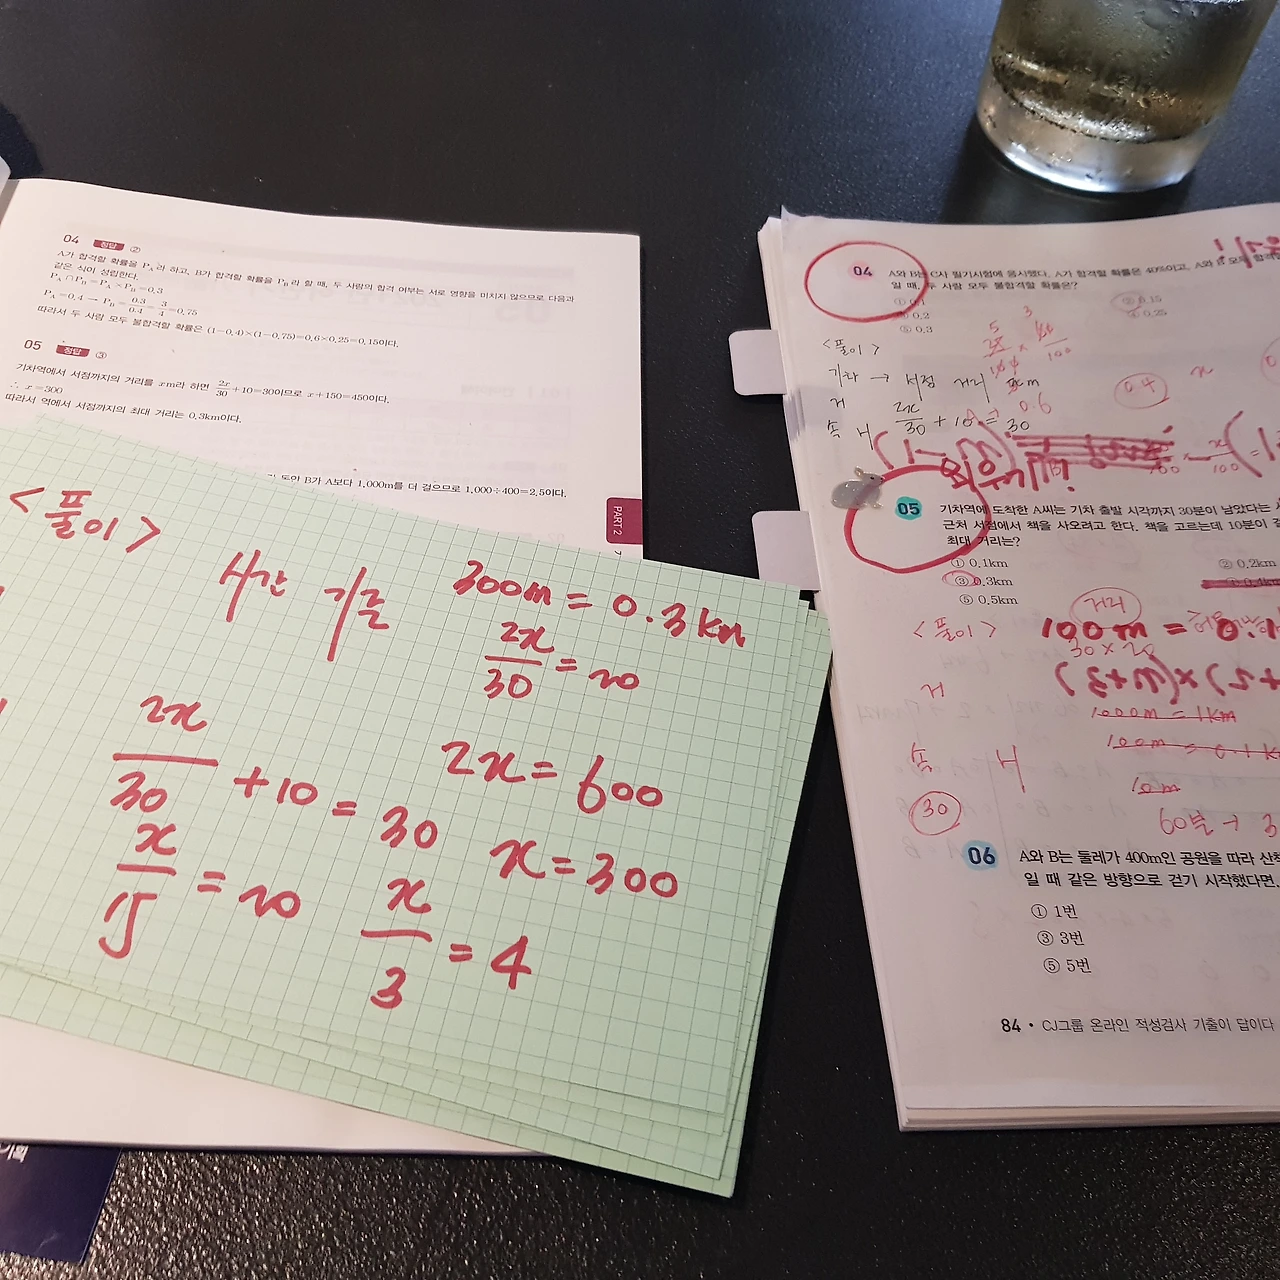 04 정답 ②
A가 합격할 확률을 P_A라 하고, B가 합격할 확률을 P_B라 할 때, 두 사람의 합격 여부는 서로 영향을 미치지 않으므로 다음과
같은 식이 성립한다.
P_A∩P_B=P_A×P_B=0.3
P_A=0.4 → P_B=0.3/0.4=3/4=0.75
따라서 두 사람 모두 불합격할 확률은 (1-0.4)×(1-0.75)=0.6×0.25=0.15이다.
05 정답 ③
기차역에서 서점까지의 거리를 xm라 하면 2x/30+10=30이므로 x+150=450이다.
∴ x=300
따라서 역에서 서점까지의 최대 거리는 0.3km이다.
동안 B가 A보다 1,000m를 더 걸으므로 1,000÷400=2.5이다.
PART 2
<풀이>
시간 기준
300m = 0.3km
2x/30 = 20
2x/30 + 10 = 30
2x = 600
x/15 = 20
x = 300
x/3 = 4
04 A와 B는 C사 필기시험에 응시했다. A가 합격할 확률은 40%이고, A와 B 모두 합격할
일 때, 두 사람 모두 불합격할 확률은?
① 0.1
② 0.15
③ 0.2
④ 0.25
⑤ 0.3
<풀이>
기차 → 서점 거리 xm
거
속 시 2x/30 + 10 = 30
0.4
0.6
외우기!!
05 기차역에 도착한 A씨는 기차 출발 시각까지 30분이 남았다는
근처 서점에서 책을 사오려고 한다. 책을 고르는데 10분이
최대 거리는?
① 0.1km
② 0.2km
③ 0.3km
④ 0.4km
⑤ 0.5km
<풀이>
거리
100m = 0.1
30×20
거
속 시
1000m = 1km
100m = 0.1k
10m
30
60분 →
06 A와 B는 둘레가 400m인 공원을 따라 산책
일 때 같은 방향으로 걷기 시작했다면,
① 1번
③ 3번
⑤ 5번
84 • CJ그룹 온라인 적성검사 기출이 답이다